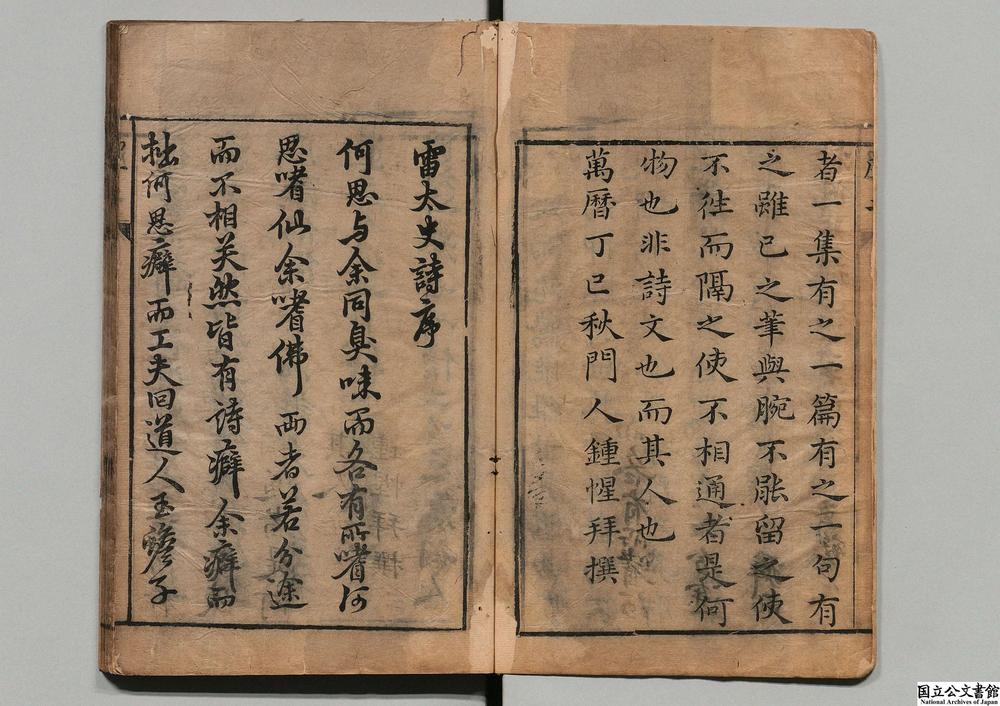 者一集有之一篇有之一句有
之雖己之筆與腕不能留之使
不往而隔之使不相通者是何
物也非詩文也而其人也
萬曆丁巳秋門人鍾惺拜撰
雷太史詩序
何思与余同臭味而各有所嗜何
思嗜仙余嗜佛两者若分途
而不相关然皆有诗癖余癖而
拙何思癖而工夫回道人玉蟾子
国立公文書館
National Archives of Japan